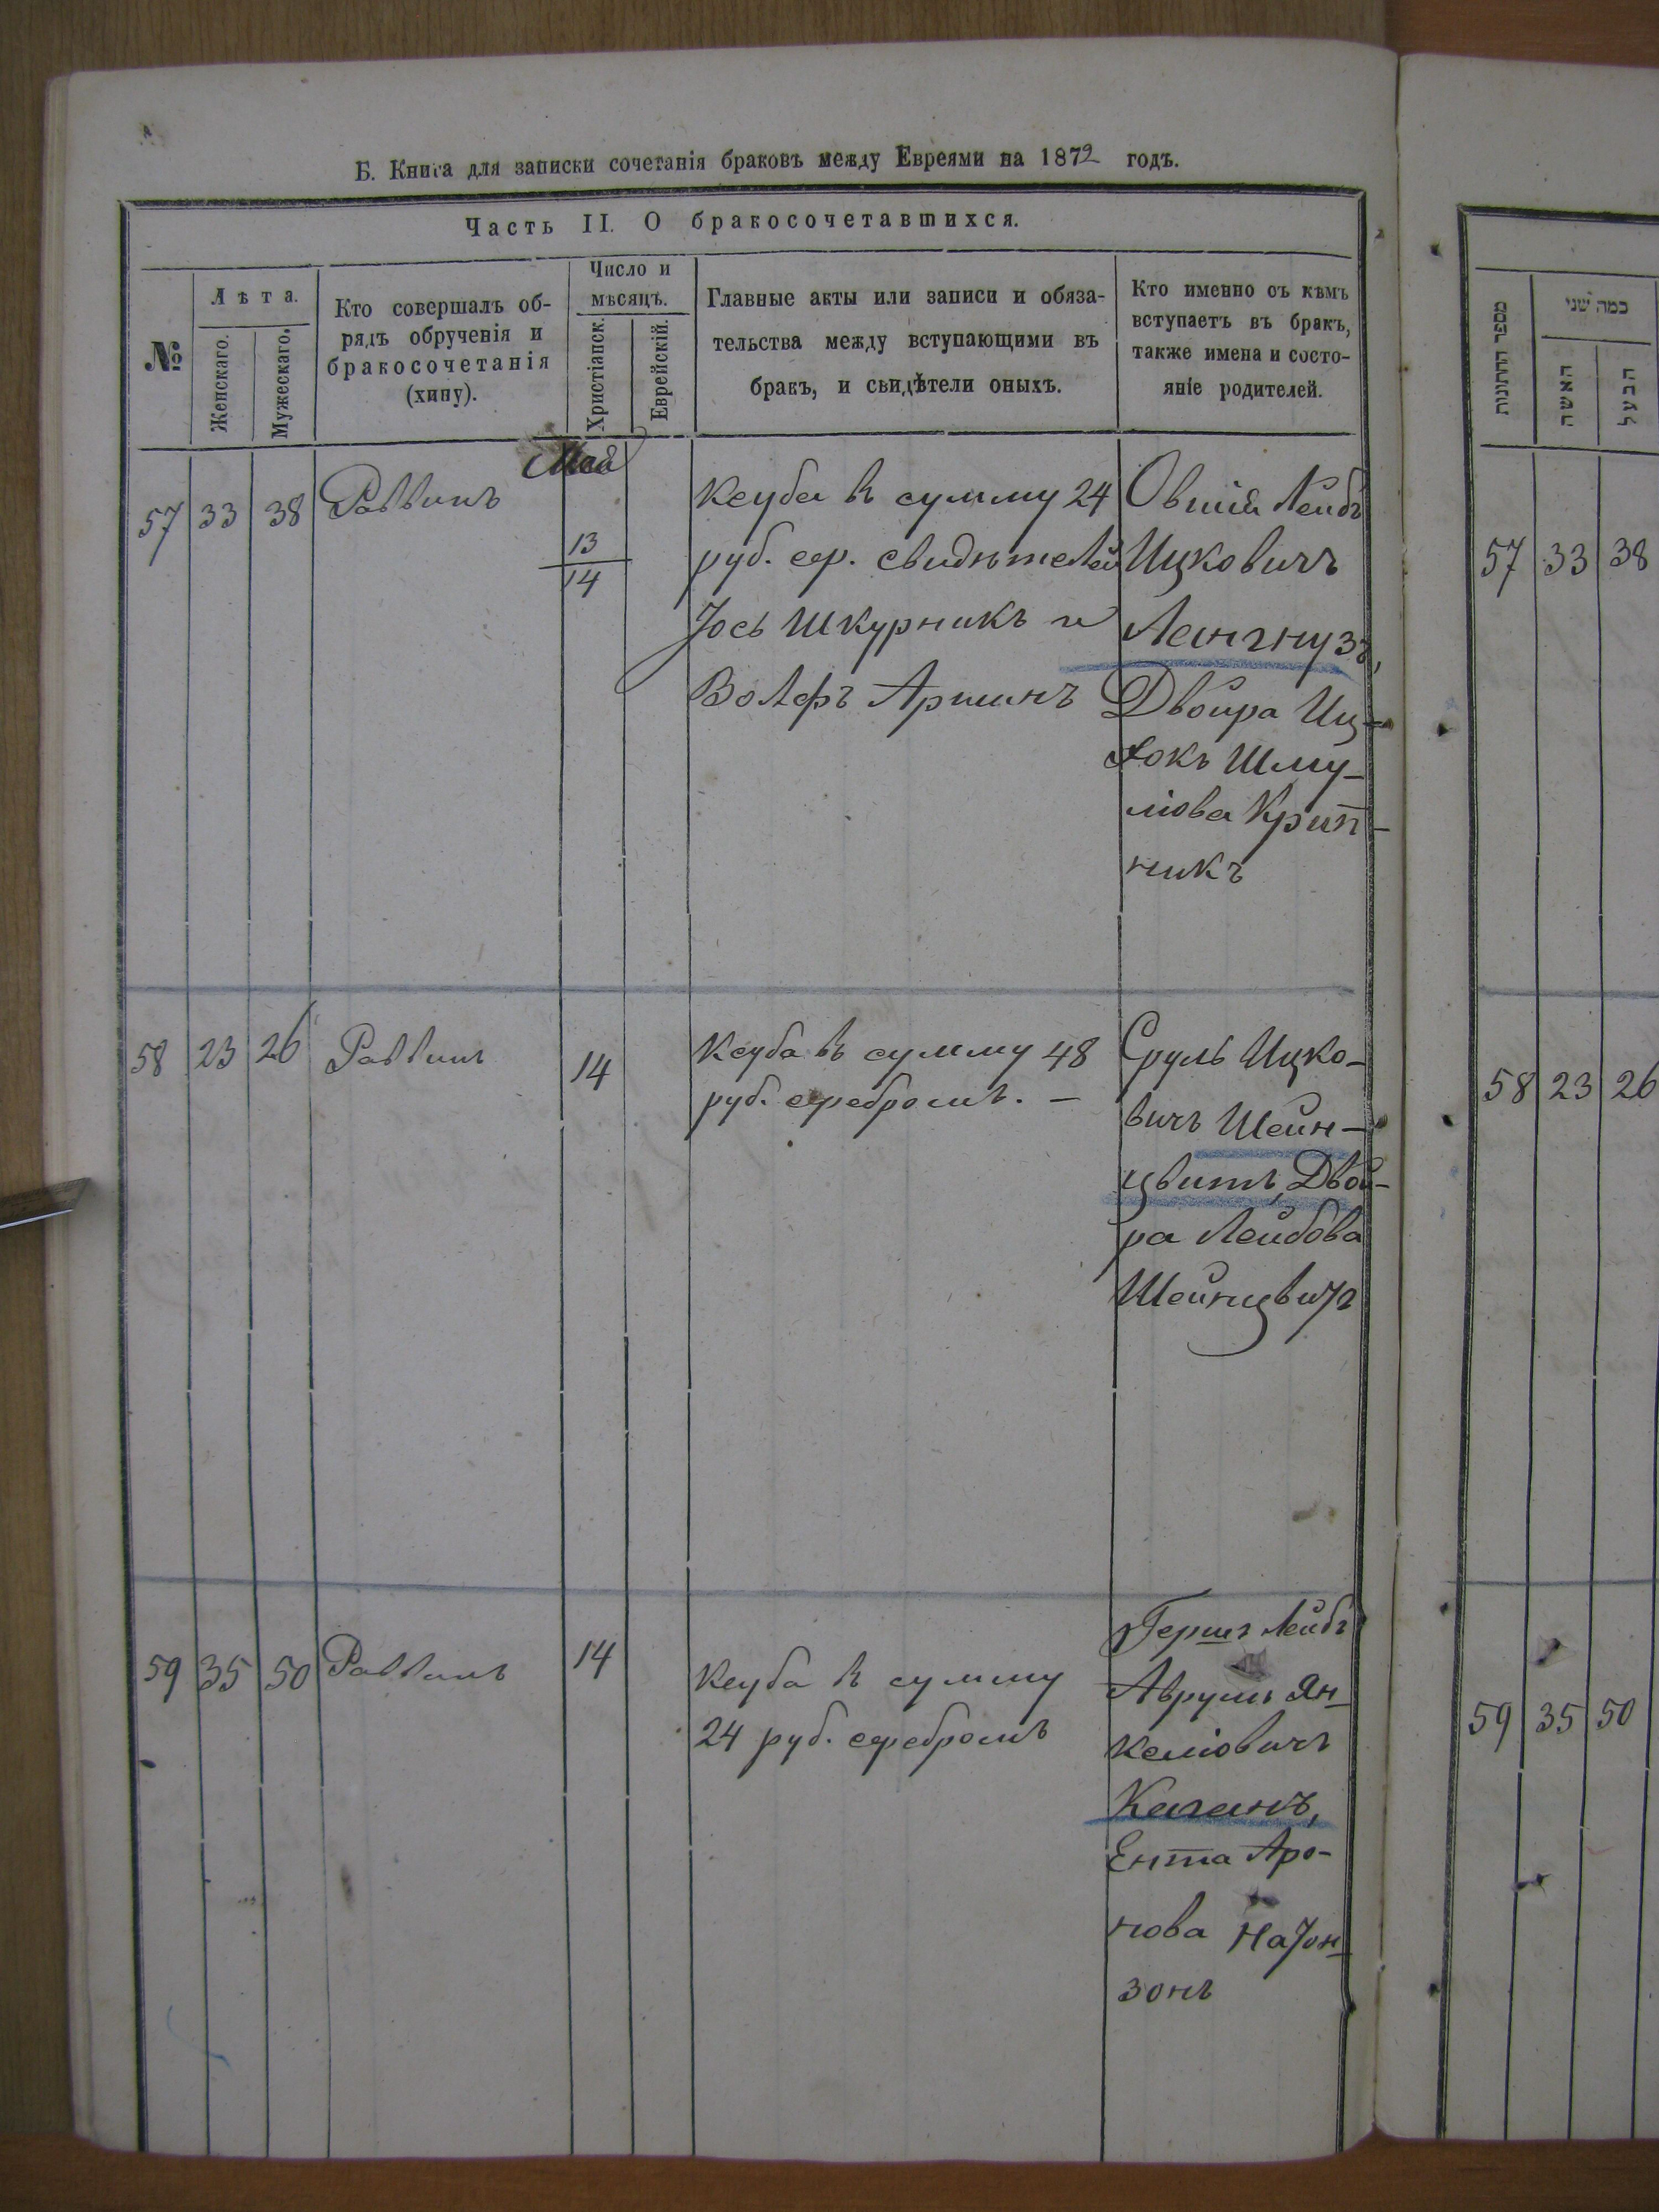 Б. Книга для записки сочетанія браковъ между Евреями на 1872 годъ.
Часть II. О бракосочетавшихся.
№
Лѣта.
Женскаго.
Мужескаго.
Кто совершалъ об-
рядъ обрученія и
бракосочетанія
(хипу).
Число и
мѣсяцъ.
Христіанск.
Еврейскій.
Главные акты или записи и обяза-
тельства между вступающими въ
бракъ, и свидѣтели оныхъ.
Кто именно съ кѣмъ
вступаетъ въ бракъ,
также имена и состо-
яніе родителей.
מספר החתונות
כמה שני
האשה
הבעל
Май
57 33 38 Раввинъ
13
14
Кеуба въ сумму 24
руб. сер. свидѣтелей
Іось Шкурникъ и
Волфъ Аршинъ
Овшій Лейбъ
Ицковичъ
Лангнузъ,
Двойра Иц-
Шму-
ліова Крип-
никъ
57 33 38
58 23 26 Раввинъ 14
Кеуба въ сумму 48
руб. серебромъ. -
Сруль Ицко-
вичъ Шейн-
цвитъ, Двой-
ра Лейбова
Шейнцвитъ
58 23 26
59 35 50 Раввинъ 14
Кеуба въ сумму
24 руб. серебромъ
Гершъ Лейбъ
Аврумъ Ян-
келіовичъ
Каганъ,
Ента Аро-
нова Натон-
зонъ
59 35 50